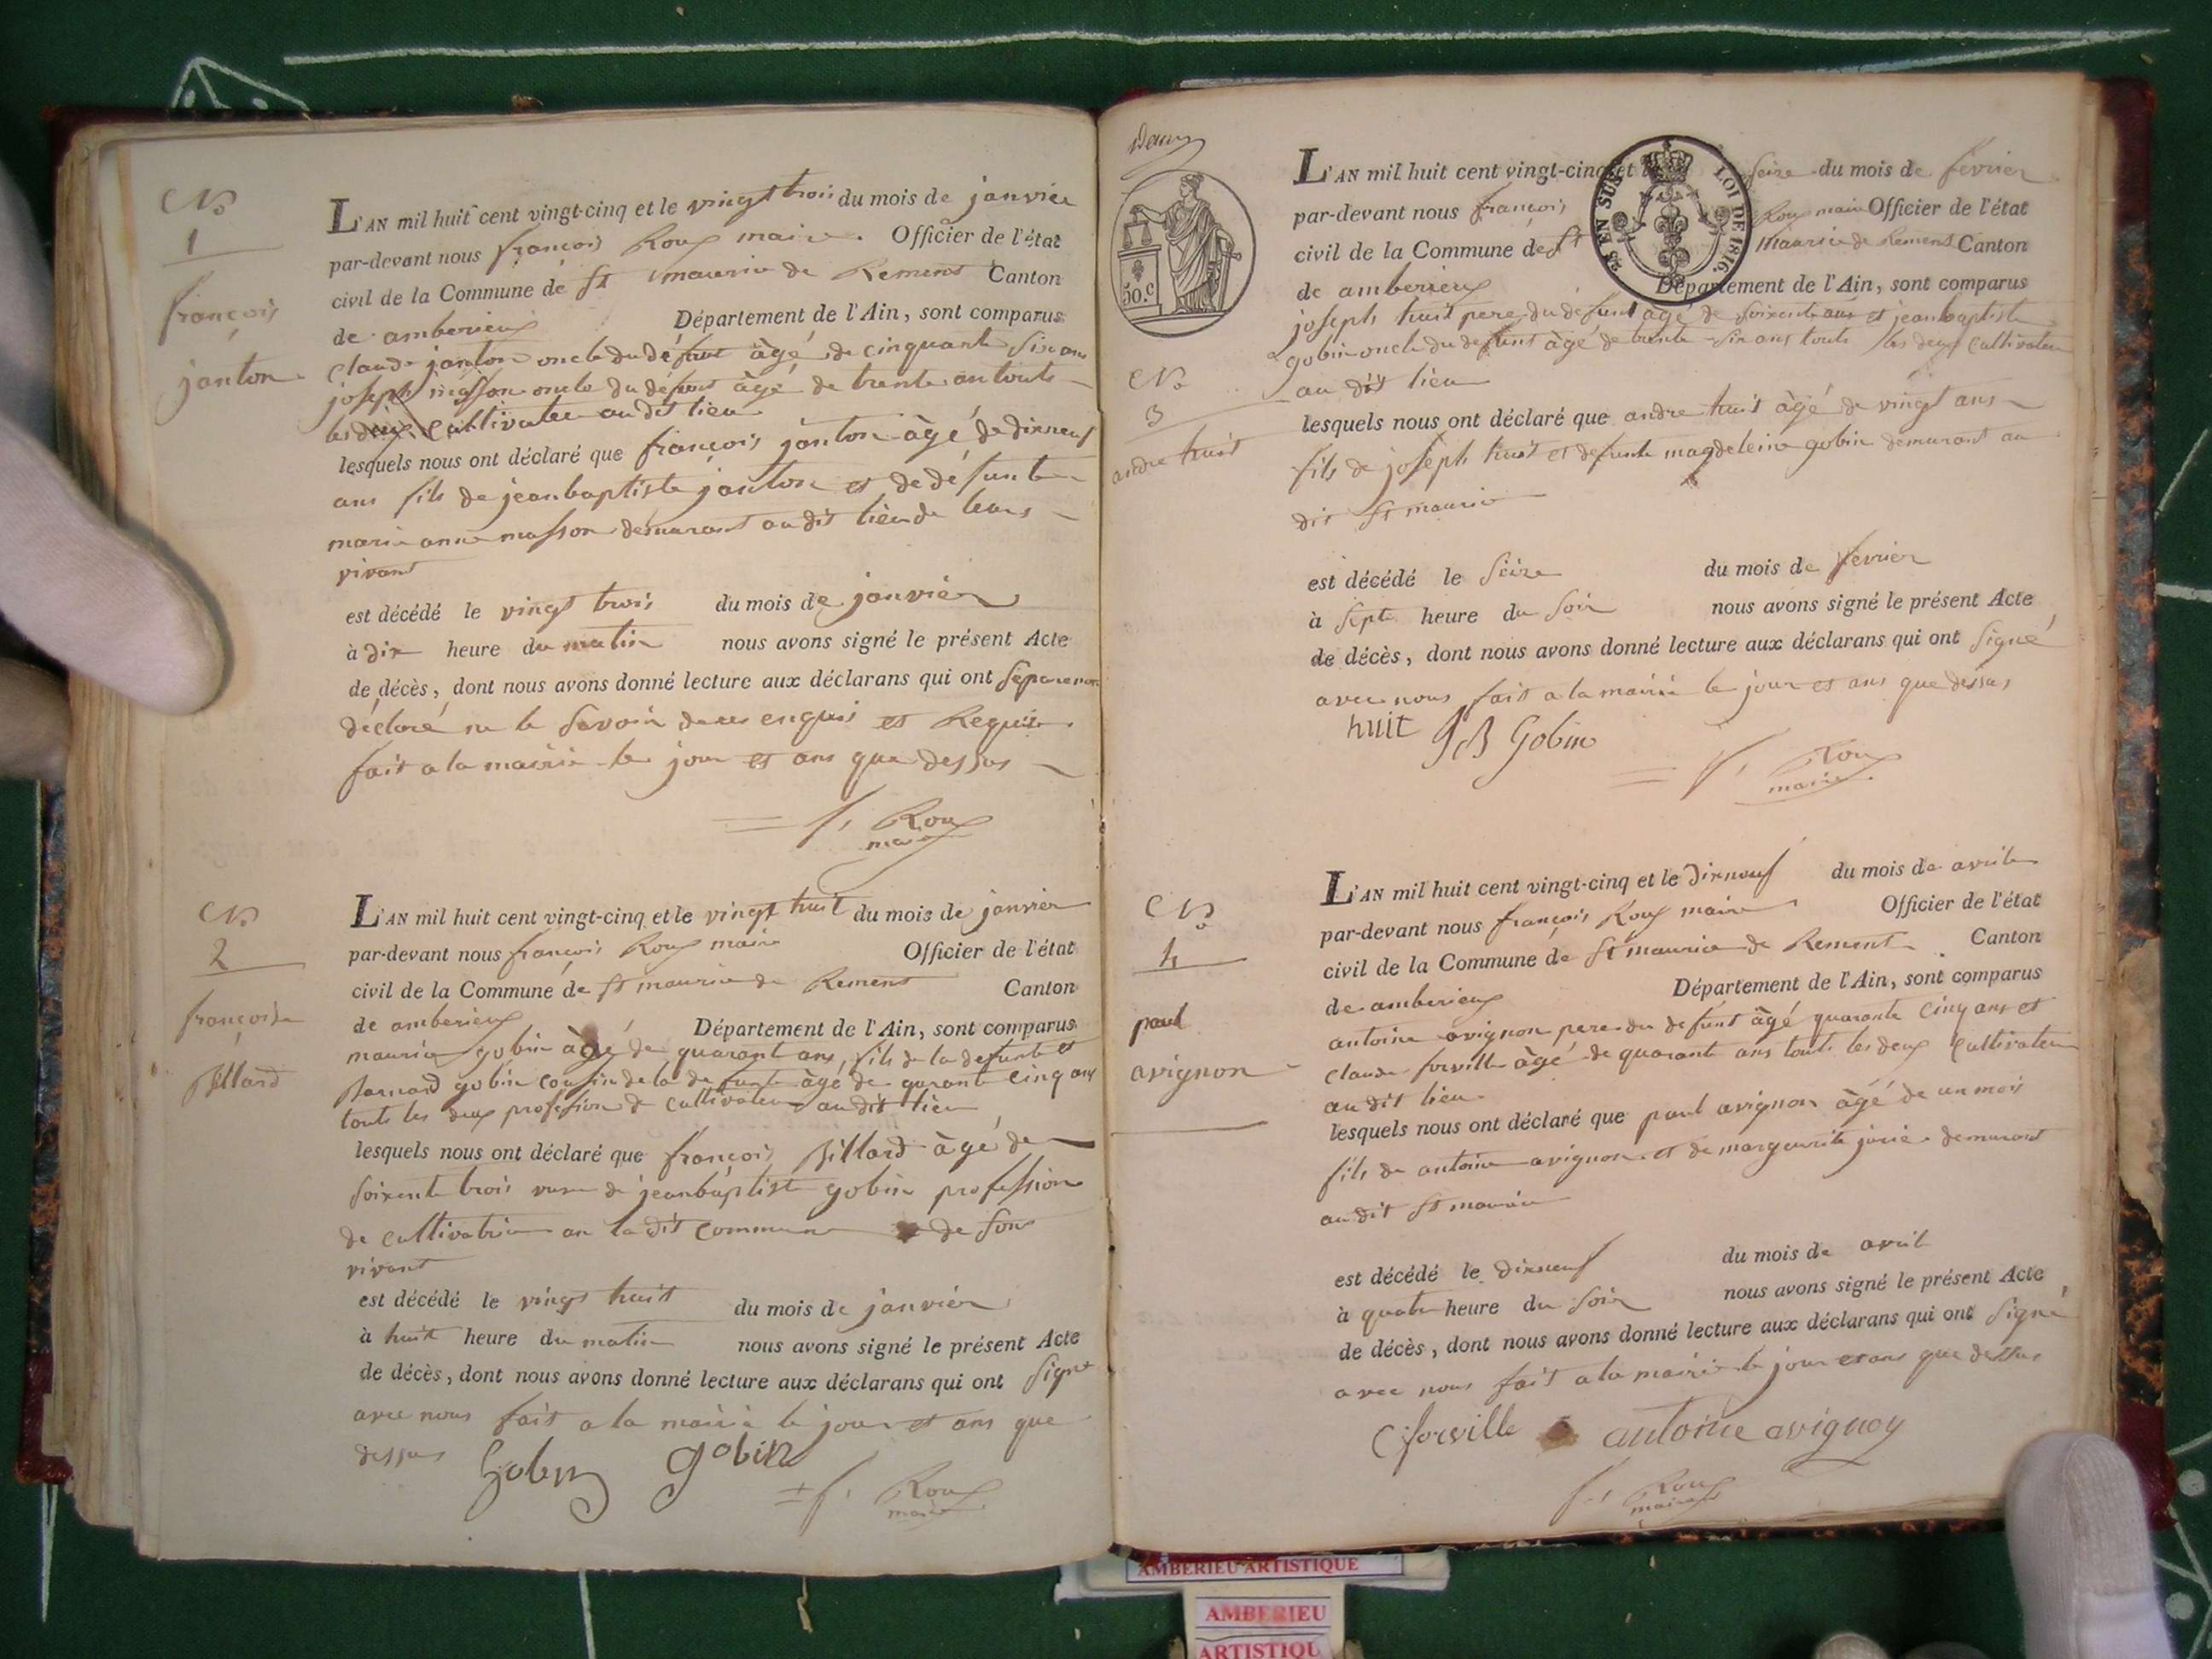 No
1
françois
janton
L'AN mil huit cent vingt-cinq et le vingt trois du mois de janvier
par-devant nous françois Roux maire Officier de l'état
civil de la Commune de st maurice de Remens Canton
de amberieux Département de l'Ain, sont comparus
claude janton oncle du défunt âgé de cinquante six ans
joseph masson oncle du défunt âgé de trente an touts
les deux cultivateur au dit lieu
lesquels nous ont déclaré que françois janton âgé de dixneuf
ans fils de jeanbaptiste janton et de défunte
marie anne masson demurant au dit lieu de leurs
vivant
est décédé le vingt trois du mois de janvier
à dix heure du matin nous avons signé le présent Acte
de décès, dont nous avons donné lecture aux déclarans qui ont
déclaré ne le savoir de ce enquis et Requis
fait a la mairie le jour et ans que dessus
f, Roux
maire
No
2
françoise
Billard
L'AN mil huit cent vingt-cinq et le vingt huit du mois de janvier
par-devant nous françois Roux maire Officier de l'état
civil de la Commune de st maurice de Remens Canton
de amberieux Département de l'Ain, sont comparus
maurice gobin agé de quarant ans, fils de la defunte et
Barnard gobin cousin de la defunte âgé de quarante cinq ans
touts les deux profession de cultivateur au dit lieu
lesquels nous ont déclaré que françois Billard âgé de
soixente trois veuve de jeanbaptiste gobin profession
de cultivatrice au la dit commune de son
vivant
est décédé le vingt huit du mois de janvier
à huit heure du matin nous avons signé le présent Acte
de décès, dont nous avons donné lecture aux déclarans qui ont signé
avec nous fait a la mairie le jour et ans que
dessus Gobin gobin
f, Roux
maire
50.C
25 EN SUS LOI DE 1816.
No
3
andre huit
L'AN mil huit cent vingt-cinq et le seize du mois de fevrier
par-devant nous françois Roux maire Officier de l'état
civil de la Commune de st maurice de Remens Canton
de amberieux Département de l'Ain, sont comparus
joseph huit pere du défunt âgé de soixente ans et jeanbaptiste
gobin oncle du defunt âgé de trente six ans touts les deux cultivateur
au dit lieu
lesquels nous ont déclaré que andre huit âgé de vingt ans
fils de joseph huit et defunte magdeleine gobin demurant au
dit st maurice
est décédé le seize du mois de fevrier
à sept heure du soir nous avons signé le présent Acte
de décès, dont nous avons donné lecture aux déclarans qui ont signé
avec nous fait a la mairie le jour et ans que dessus
huit JB Gobin
f, Roux
maire
No
4
paul
avignon
L'AN mil huit cent vingt-cinq et le dixneuf du mois de avril
par-devant nous françois Roux maire Officier de l'état
civil de la Commune de st maurice de Remens Canton
de amberieux Département de l'Ain, sont comparus
antoine avignon pere du defunt âgé quarante cinq ans et
claude forville âgé de quarante ans touts les deux cultivateur
au dit lieu
lesquels nous ont déclaré que paul avignon âgé de un mois
fils de antoine avignon et de marguerite demurant
au dit st maurice
est décédé le dixneuf du mois de avril
à quatre heure du soir nous avons signé le présent Acte
de décès, dont nous avons donné lecture aux déclarans qui ont signé
avec nous fait a la mairie le jour et ans que dessus
C forville antoine avignon
f, Roux
maire
AMBERIEU ARTISTIQUE
AMBERIEU
ARTISTIQU